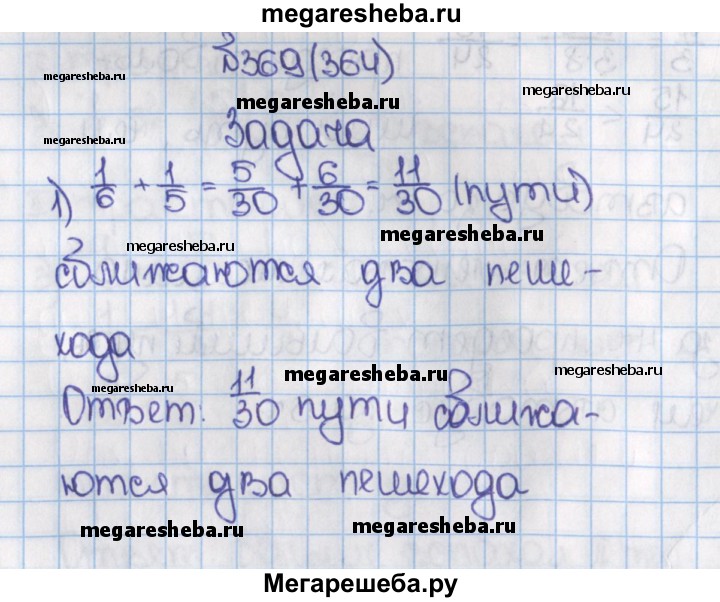 megaresheba.ru
№369(364)
megaresheba.ru
megaresheba.ru
Задача
megaresheba.ru
1) 1/6 + 1/5 = 5/30 + 6/30 = 11/30 (пути)
megaresheba.ru
megaresheba.ru
сближаются два пеше-
хода
megaresheba.ru
megaresheba.ru
megaresheba.ru
Ответ: 11/30 пути сближа-
ются два пешехода
megaresheba.ru
megaresheba.ru
Мегарешеба.ру